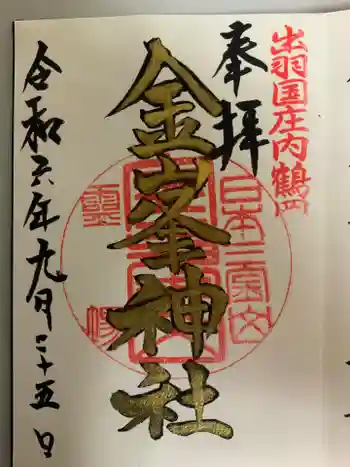 出羽国庄内鶴岡
奉拝
金峯神社
令和六年九月二十五日